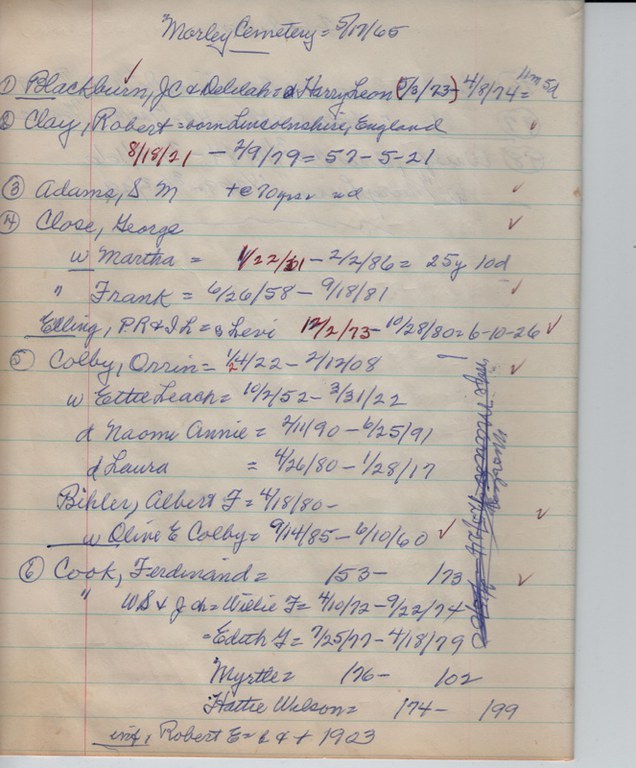 "Morley Cemetery = 5/17/65
① Blackburn, JC & Delilah = d Harry Leon (5/3/73) - 4/8/74 = 11m 5d
② Clay, Robert = born Lincolnshire, England
8/18/21 - 2/9/79 = 57-5-21
③ Adams, S M + @ 70yrs nd
④ Close, George
w Martha = 1/22/61 - 2/2/86 = 25y 10d
" Frank = 6/26/58 - 9/18/81
Elling, PR & IL = s Levi 12/2/73 - 10/28/80 = 6-10-26
⑤ Colby, Orrin = 1/4/22 - 2/12/08
w Ettie Leach = 10/2/52 - 3/31/22
d Naomi Annie = 2/11/90 - 6/25/91
d Laura = 4/26/80 - 1/28/17
Bihler, Albert F = 4/18/80 -
w Olive E Colby = 9/14/85 - 6/10/60
⑥ Cook, Ferdinand = 153 - 173
" WS & J ch = Willie F = 4/10/72 - 9/22/74
= Edith G = 7/25/77 - 4/18/79
Myrtle = 176 - 102
Hattie Wilson = 174 - 199
inf, Robert E = + 1923